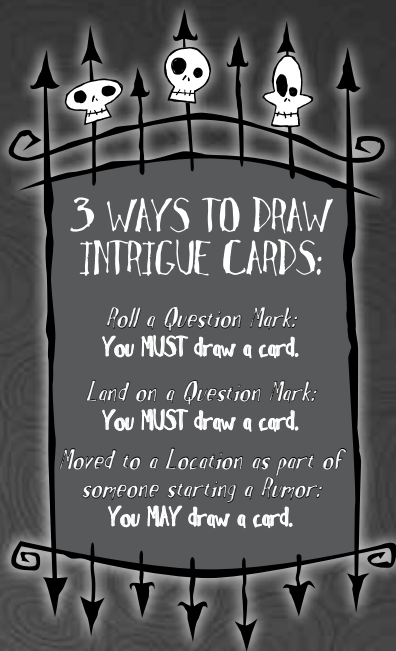 3 WAYS TO DRAW
INTRIGUE CARDS:
Roll a Question Mark:
You MUST draw a card.
Land on a Question Mark:
You MUST draw a card.
Moved to a Location as part of
someone starting a Rumor:
You MAY draw a card.